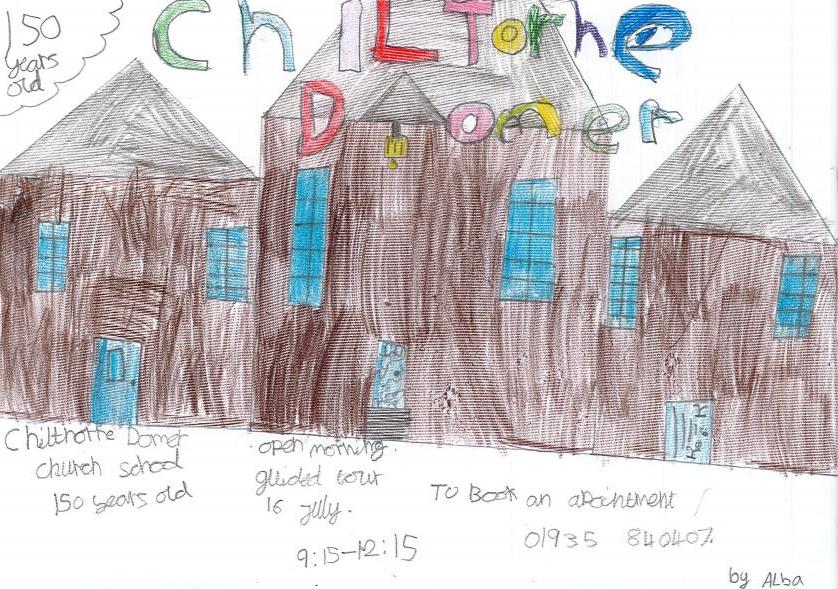 150
years
old
chiLTorne
Domer
Chilthorne Domer
church school
150 years old
open morning.
guided tour
16 July.
9:15-12:15
To Book an apointment
01935 840407
by ALba